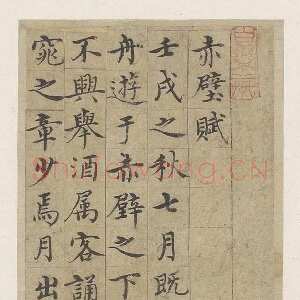 赤壁賦
壬戌之秋七月既
舟遊于赤壁之下
不興舉酒属客誦
窕之章少焉月出